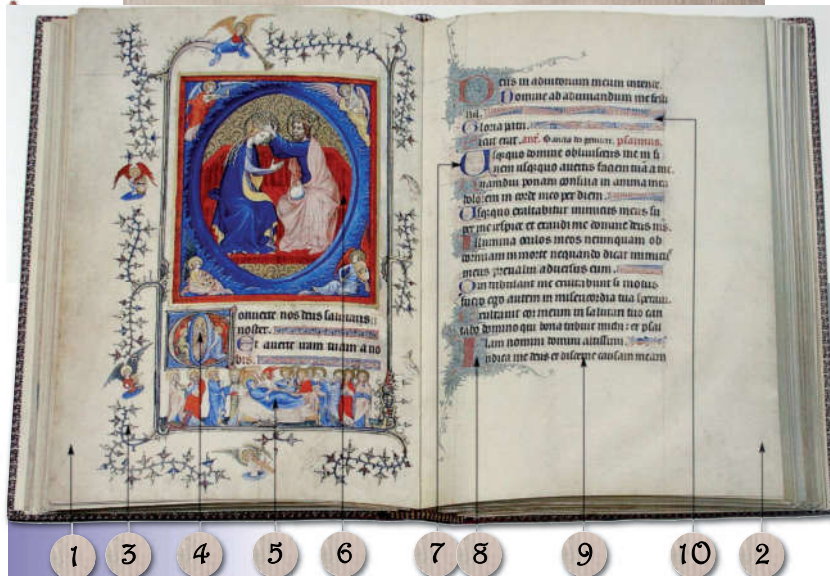 Conuerte nos deus salutaris
noster.
Et auerte iram tuam a no
bis.
Deus in adiutorium meum intende.
Domine ad adiuuandum me festi
na.
Gloria patri.
Sicut erat. ant. Sancta dei genitrix. psalmus.
Usquequo domine obliuisceris me in fi
nem usquequo auertis faciem tuā a me.
Quamdiu ponam consilia in anima mea
dolorem in corde meo per diem.
Usquequo exaltabitur inimicus meus su
per me respice et exaudi me domine deus ms.
Illumina oculos meos neumquam ob
dormiam in morte nequando dicat inimicus
meus preualui aduersus eum.
Qui tribulant me exultabunt si motus
fuero ego autem in misericordia tua speraui.
Exultauit cor meum in salutari tuo can
tabo domino qui bona tribuit michi: et psal
lam nomini domini altissimi.
Iudica me deus et discerne causam meam
1 3 4 5 6 7 8 9 10 2